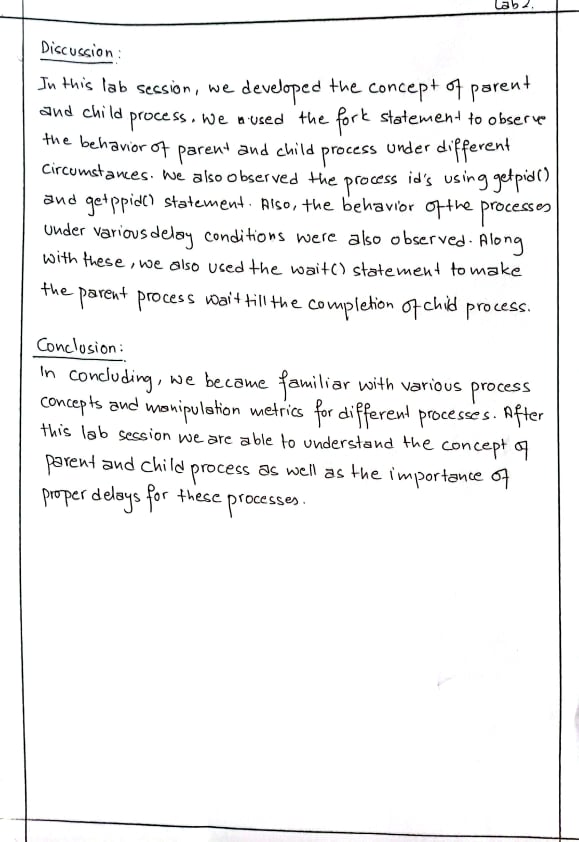 Lab 2.
Discussion :
In this lab session, we developed the concept of parent
and child process. We used the fork statement to observe
the behavior of parent and child process under different
circumstances. We also observed the process id's using getpid()
and getppid() statement. Also, the behavior of the processes
under various delay conditions were also observed. Along
with these, we also used the wait() statement to make
the parent process wait till the completion of child process.
Conclusion :
In concluding, we became familiar with various process
concepts and manipulation metrics for different processes. After
this lab session we are able to understand the concept of
parent and child process as well as the importance of
proper delays for these processes.